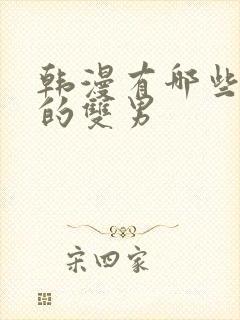 韩漫有哪些
的雙男
宋四家